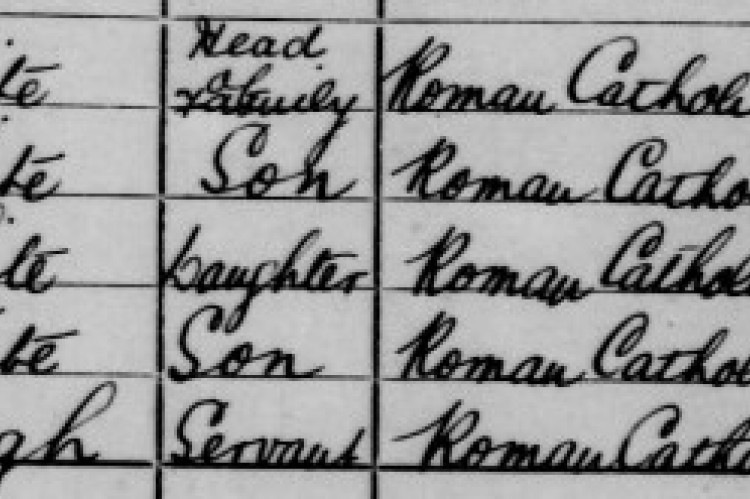 te Head Roman Catholi
Family
te Son Roman Catho
te Daughter Roman Cathol
te Son Roman Cathol
gh Servant Roman Catho